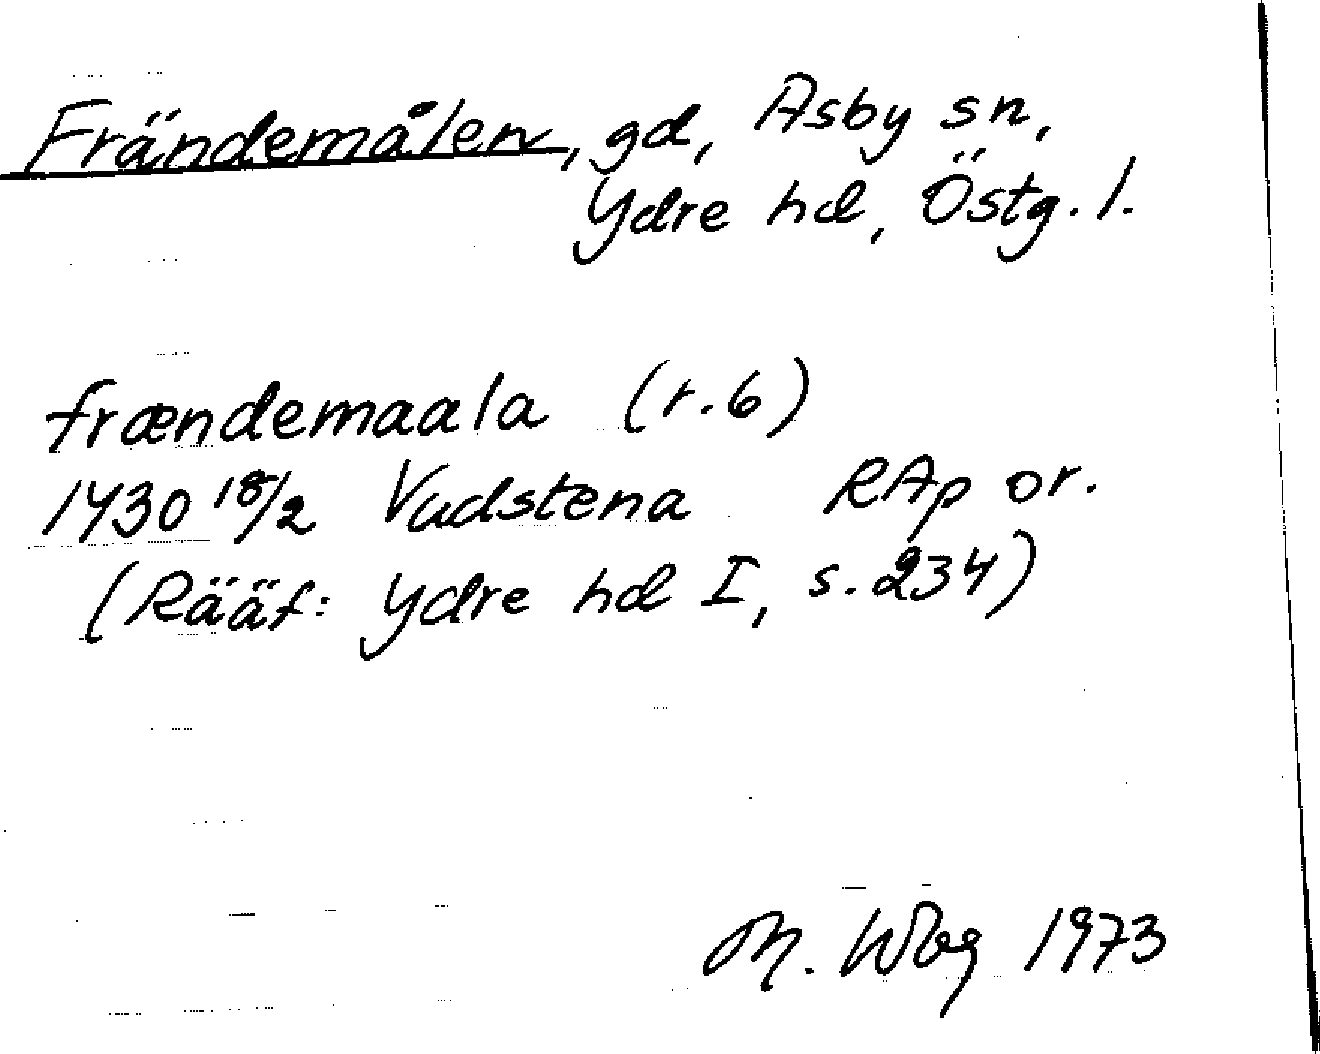 Frändemålen, gd, Asby sn,
Ydre hd, Östg. l.
frændemaala (r. 6)
1430 18/2 Vadstena RAp or.
(Rääf: Ydre hd I, s. 234)
M. Wbg 1973